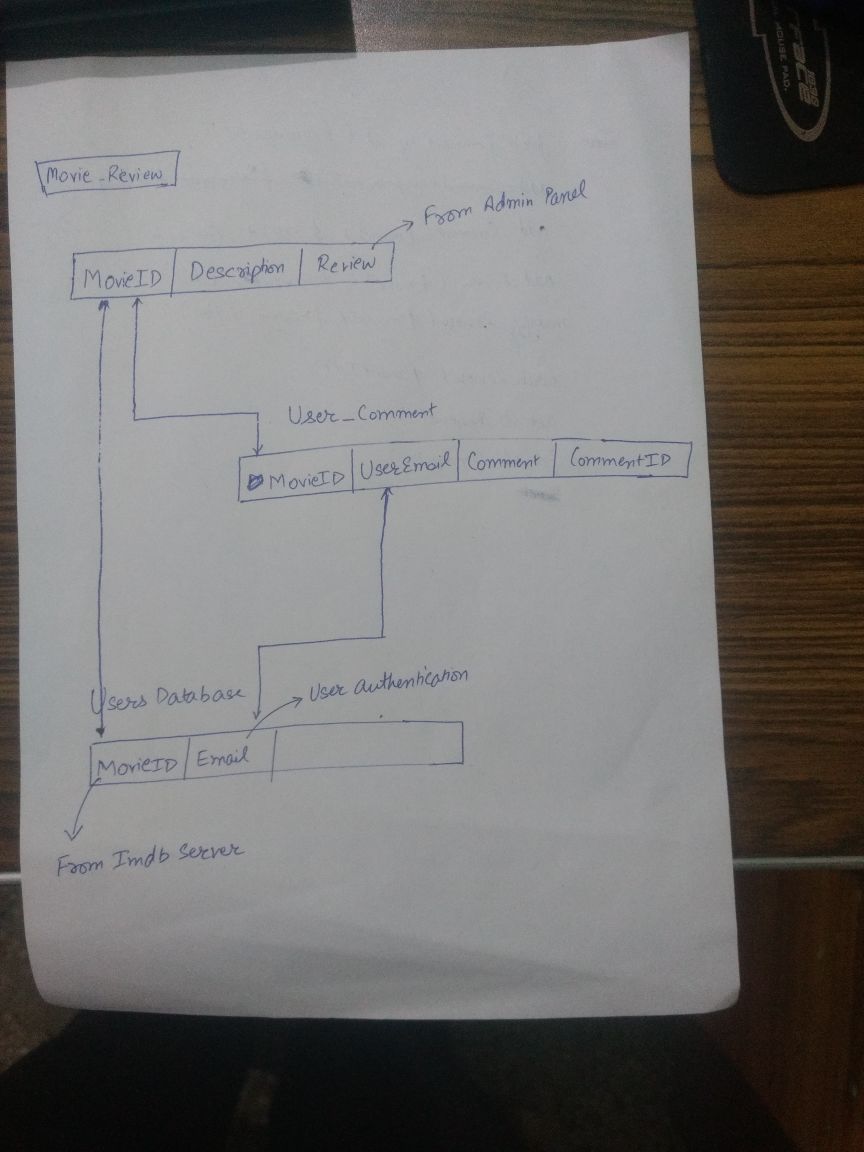 MOUSE PAD.
Movie_Review
From Admin Panel
MovieID Description Review
User_Comment
MovieID UserEmail Comment CommentID
Users Database
User Authentication
MovieID Email
From Imdb Server